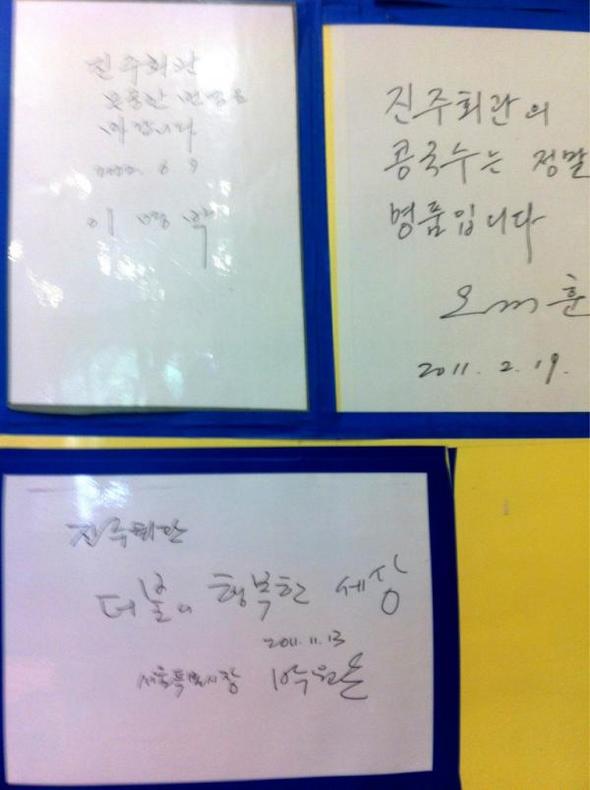 진주회관
무궁한 번영을
바랍니다
이명박
진주회관의
콩국수는 정말
명품입니다
오세훈
2011. 2. 19.
진주회관
더불어 행복한 세상
2011. 11. 13
서울특별시장 박원순